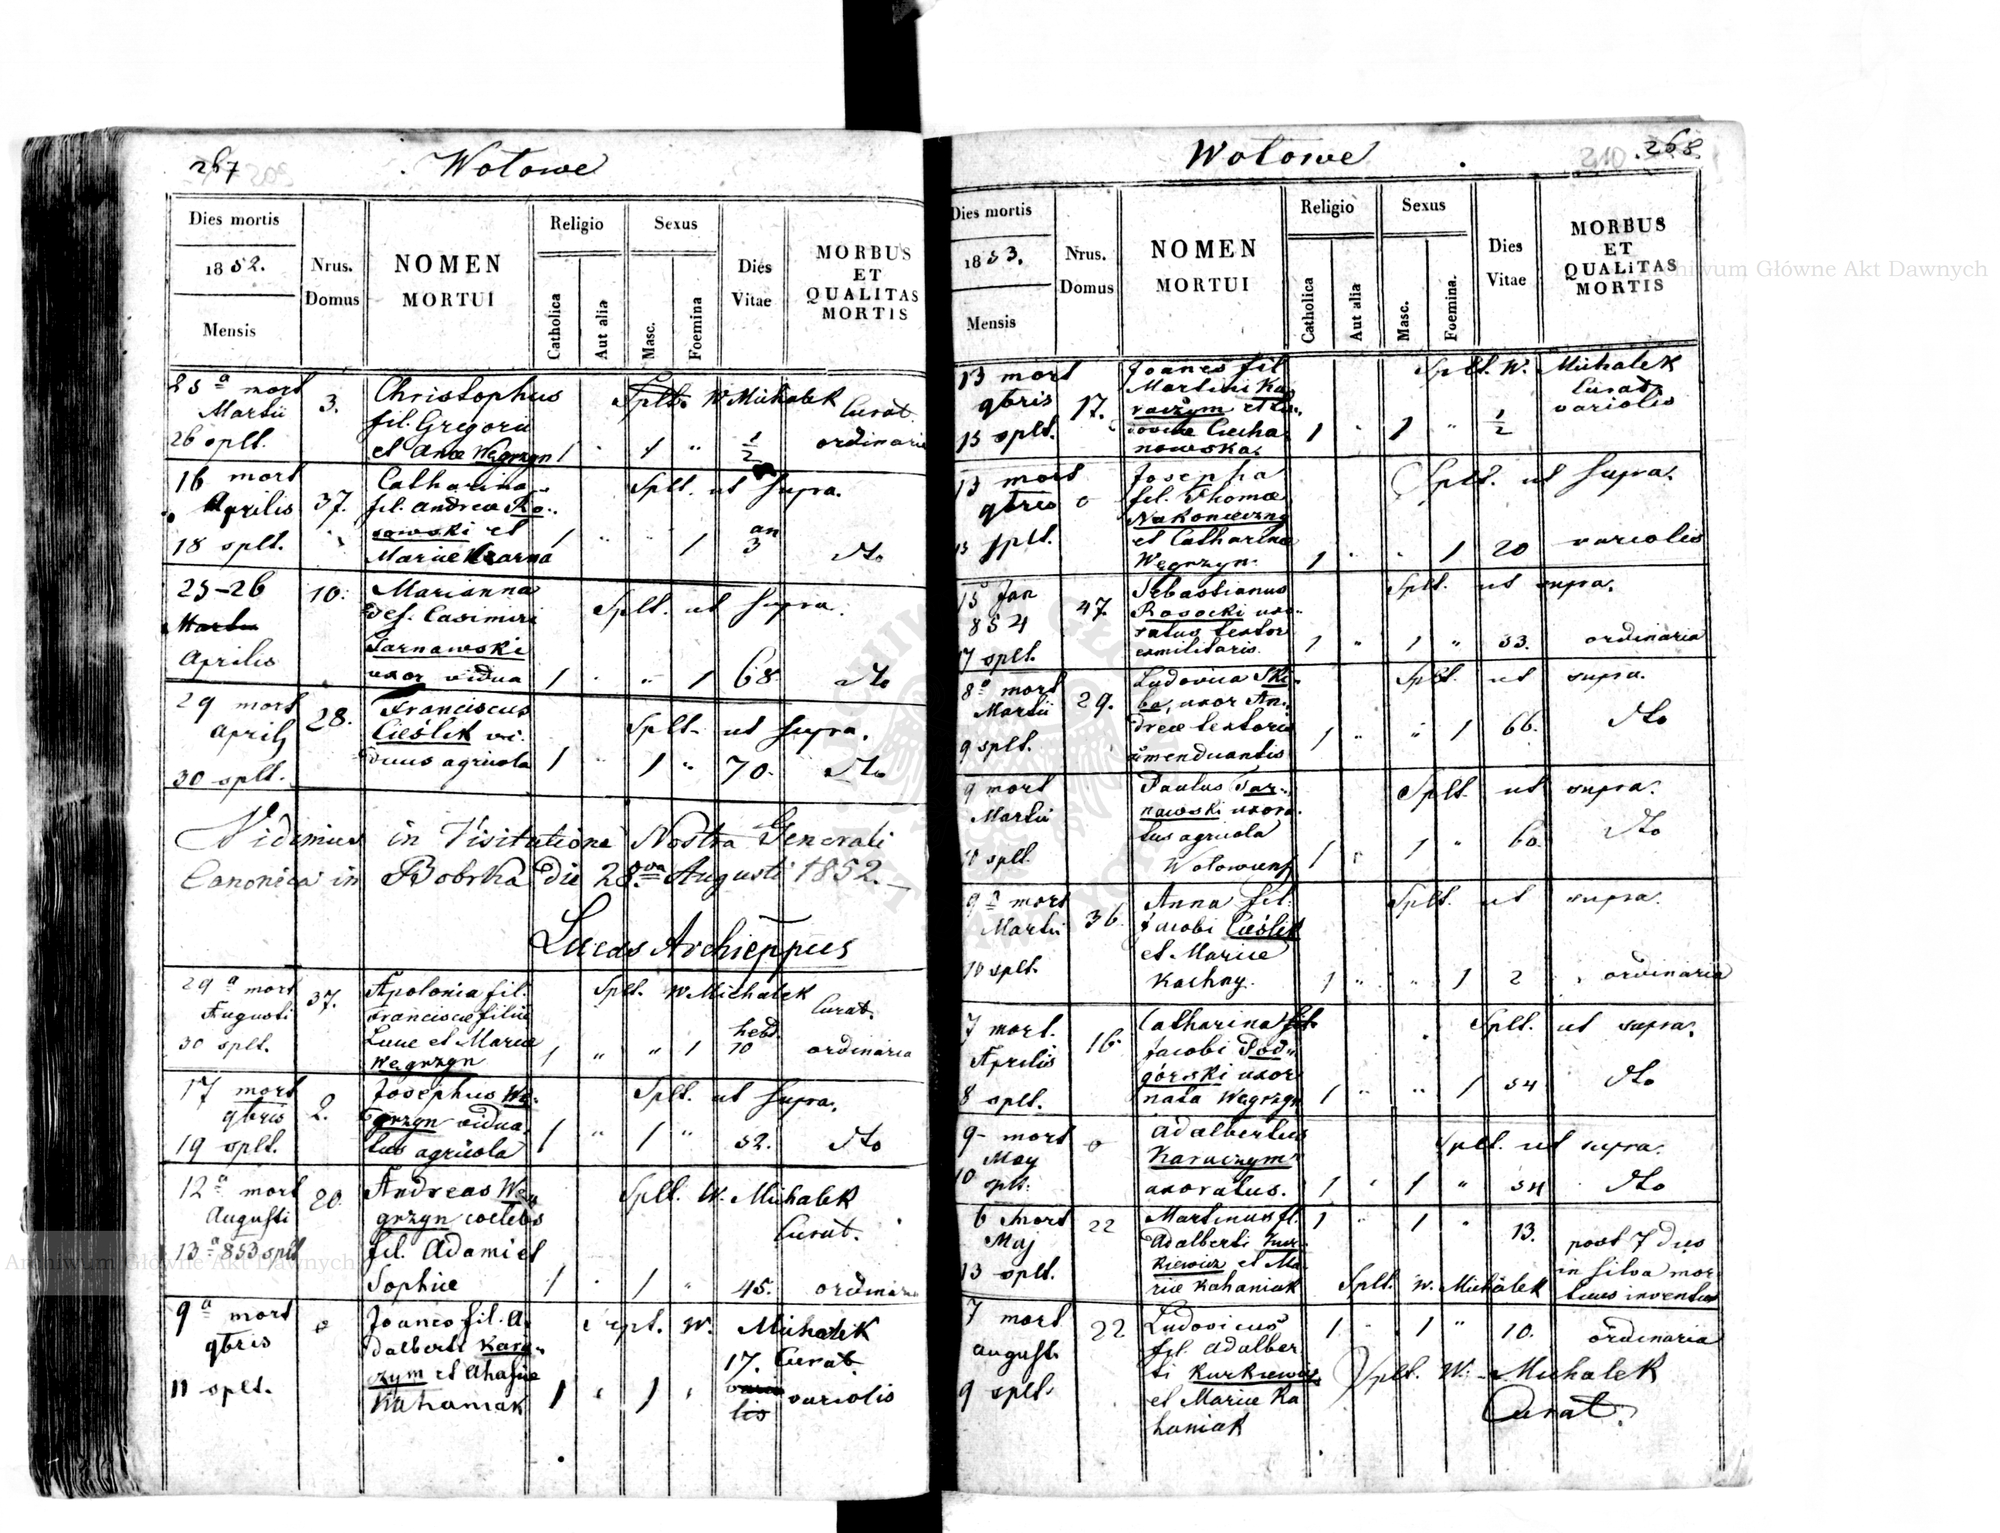 267
Wołowe
Dies mortis
1852.
Mensis
Nrus.
Domus
NOMEN
MORTUI
Religio
Catholica
Aut alia
Sexus
Masc.
Foemina
Dies
Vitae
MORBUS
ET
QUALITAS
MORTIS
25a mort
Martii
26 splt.
3.
Christophus
fil. Gregorii
et Anae Węgrzyn
1 " 1 " 1/2
Splt. W Michalek
Curat
ordinaria
16 mort
Aprilis
18 splt.
37.
Catharina
fil. Andreae Ro-
sowski et
Mariae Czarna
1 " " 1 an 3
Splt. ut supra.
dto
25-26
Martii
Aprilis
10.
Marianna
def. Casimiri
Tarnawski
uxor vidua
1 " " 1 68
Splt. ut supra.
dto
29 mort
April
30 splt.
28.
Franciscus
Cieślik vi-
duus agricola
1 " 1 " 70.
Splt. ut supra.
dto
Vidimus in Visitatione Nostra Generali
Canonica in Bobrka die 28va Augusti 1852.
Lucas Archieppus
29a mort
Augusti
30 splt.
37.
Apolonia fil.
Francisci filii
Lucae et Mariae
Węgrzyn
1 " " 1 hebd 10
Splt. W Michalek
Curat.
ordinaria
17 mort
9bris
19 splt.
2.
Josephus Wę-
grzyn vidua-
tus agricola
1 " 1 " 52.
Splt. ut supra.
dto
12a mort
Augusti
13a 853 splt
20.
Andreas Wę-
grzyn coelebs
fil. Adami et
Sophiae
1 " 1 " 45.
Splt. W. Michalek
Curat.
ordinaria
9a mort
9bris
11 splt.
0
Joanes fil. A-
dalberti Kara-
czym et
Kahaniak
1 " 1 "
Sept. W. Michalek
17. Curat
variolis
268
210
Wołowe
Dies mortis
1853.
Mensis
Nrus.
Domus
NOMEN
MORTUI
Religio
Catholica
Aut alia
Sexus
Masc.
Foemina.
Dies
Vitae
MORBUS
ET
QUALITAS
MORTIS
13 mort
9bris
15 splt.
17.
Joanes fil
Martini Ka-
raczym et Lu-
dovicae Ciecha-
nowska.
1 " 1 " 1/2
Splt. W. Michalek
Curat
variolis
13 mort
9bris
15 splt.
0
Josepha
fil. Thomae
Nakonieczny
et Catharinae
Węgrzyn.
1 " " 1 20
Splt. ut supra.
variolis
15 Jan
854
17 splt.
47.
Sebastianus
Rosocki uxo-
ratus textor
exmilitaris.
1 " 1 " 53.
Splt. ut supra.
ordinaria
8a mort
Martii
9 splt.
29.
Ludovica Ski-
ba, uxor An-
dreae textoris
1 " " 1 66.
Splt. ut supra.
dto
9 mort
Martii
10 splt.
Paulus Tar-
nawski uxora-
tus agricola
1 " 1 " 60.
Splt. ut supra.
dto
9a mort
Martii
10 splt.
36.
Anna fil.
Jacobi Cieślik
et Mariae
Kachny.
1 " " 1 2
Splt. ut supra.
ordinaria
7 mort.
Aprilis
8 splt.
16.
Catharina fil.
Jacobi Pod-
górski uxor
nata Węgrzyn
1 " " 1 54
Splt. ut supra.
dto
9 mort
May
10 splt.
0
Adalbertus
Karaczym
uxoratus.
1 " 1 " 54
Splt. ut supra.
dto
6 mort
Maj
13 splt.
22
Martinus fl.
Adalberti Kur-
kiewicz et Ma-
riae Kahaniak
1 " 1 " 13.
Splt. W. Michalek
post 7 dies
in silva mor-
tuus inventus
7 mort
august.
9 splt.
22
Ludovicus
fil. Adalber-
ti Kurkiewicz
et Mariae Ka
haniak
1 " 1 " 10.
ordinaria
Splt. W. Michalek
Curat.
Archiwum Główne Akt Dawnych
Archiwum Główne Akt Dawnych